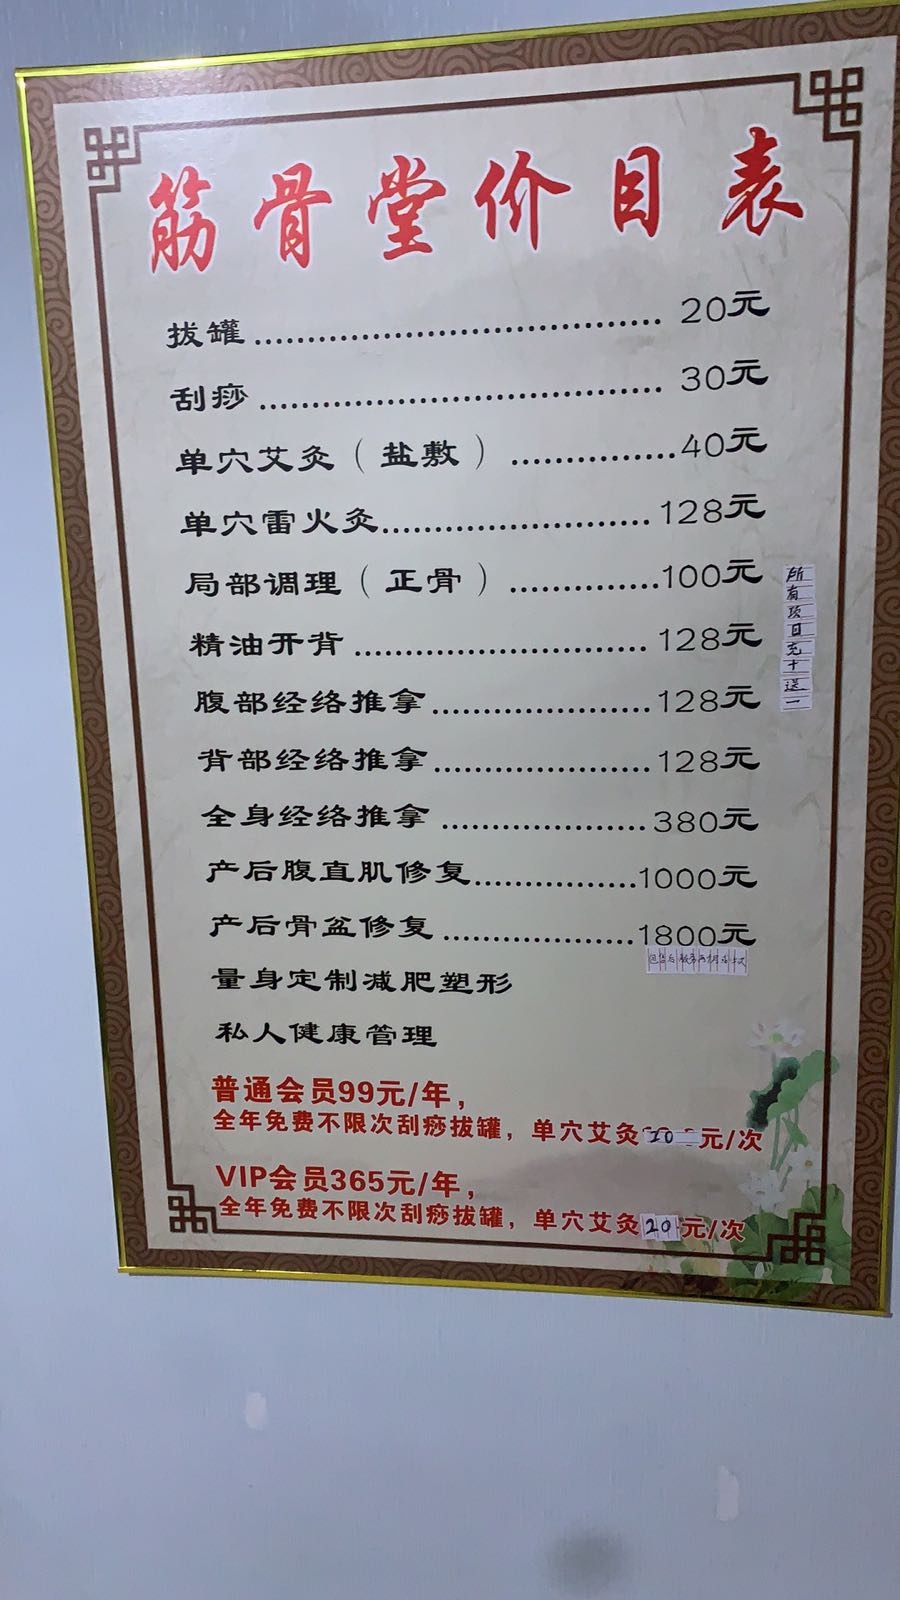 筋骨堂价目表
拔罐.................................... 20元
刮痧.................................... 30元
单穴艾灸（盐敷）...............40元
单穴雷火灸........................128元
局部调理（正骨）..............100元
精油开背..........................128元
腹部经络推拿....................128元
背部经络推拿....................128元
全身经络推拿...................380元
产后腹直肌修复...............1000元
产后骨盆修复..................1800元
量身定制减肥塑形
私人健康管理
普通会员99元/年，
全年免费不限次刮痧拔罐，单穴艾灸20元/次
VIP会员365元/年，
全年免费不限次刮痧拔罐，单穴艾灸20元/次
所有项目充十送一